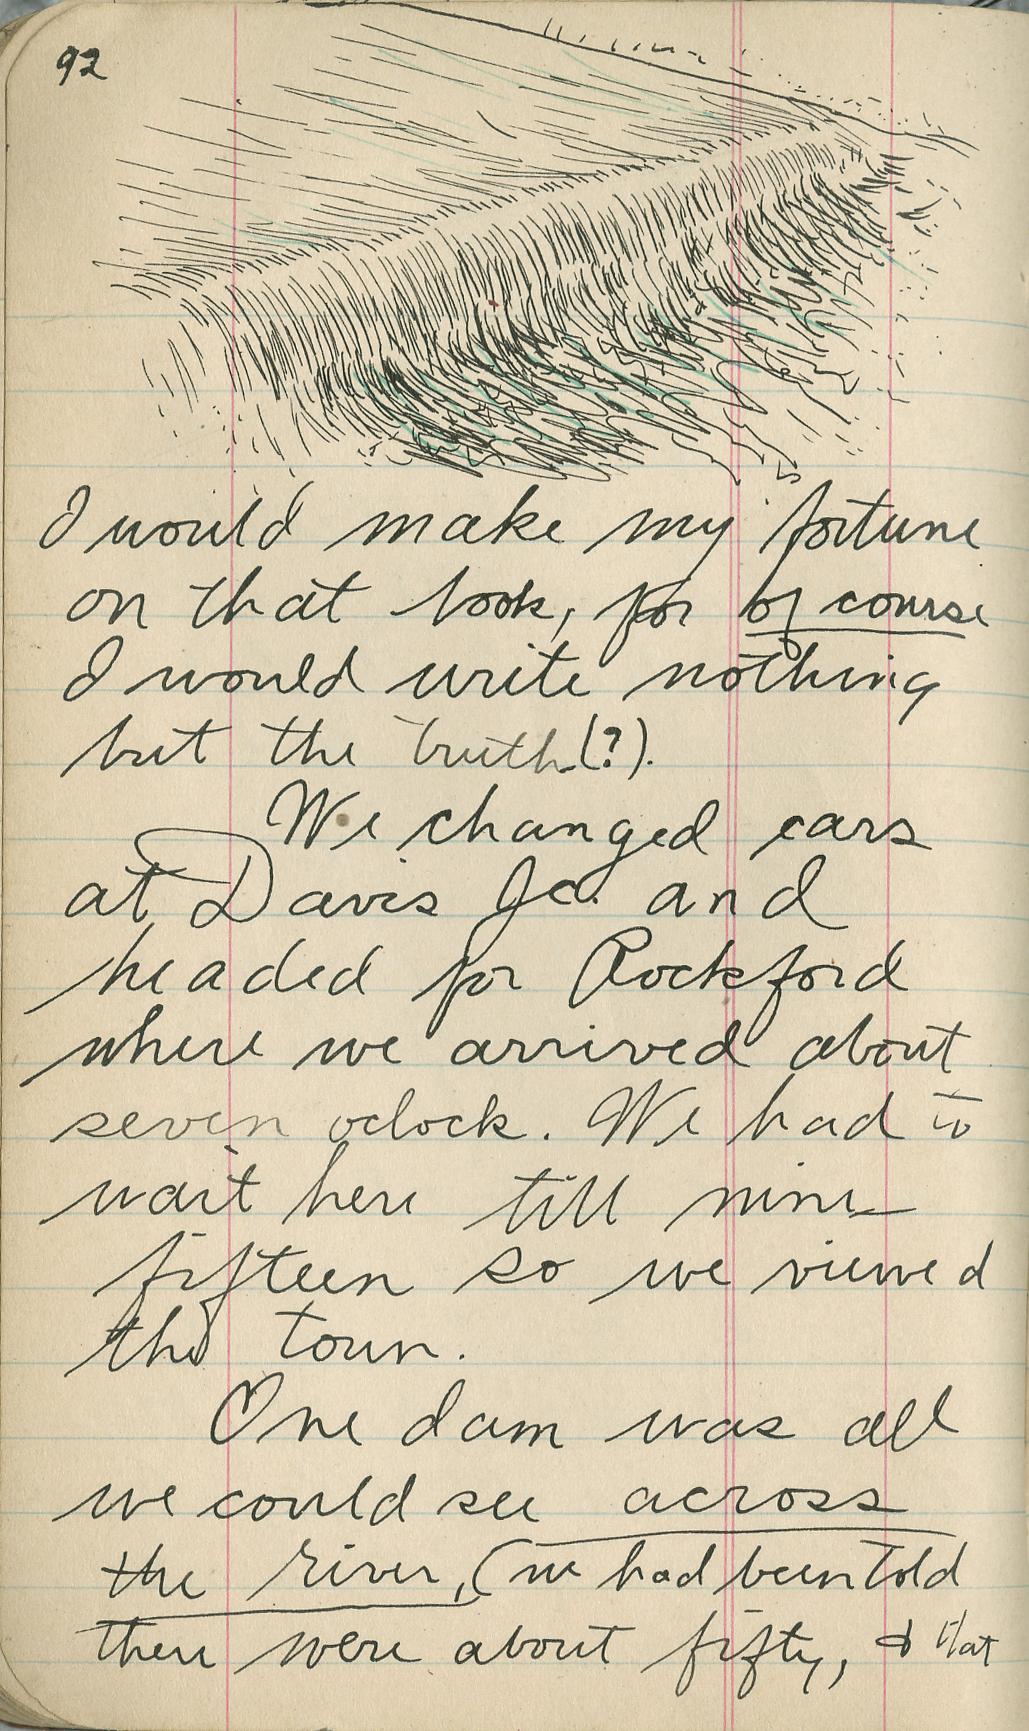 92
I would make my fortune
on that book, for of course
I would write nothing
but the truth (?).
We changed cars
at Davis Jc. and
headed for Rockford
where we arrived about
seven oclock. We had to
wait here till nine
fifteen so we viewed
the town.
One dam was all
we could see across
the river, (we had been told
there were about fifty, & that